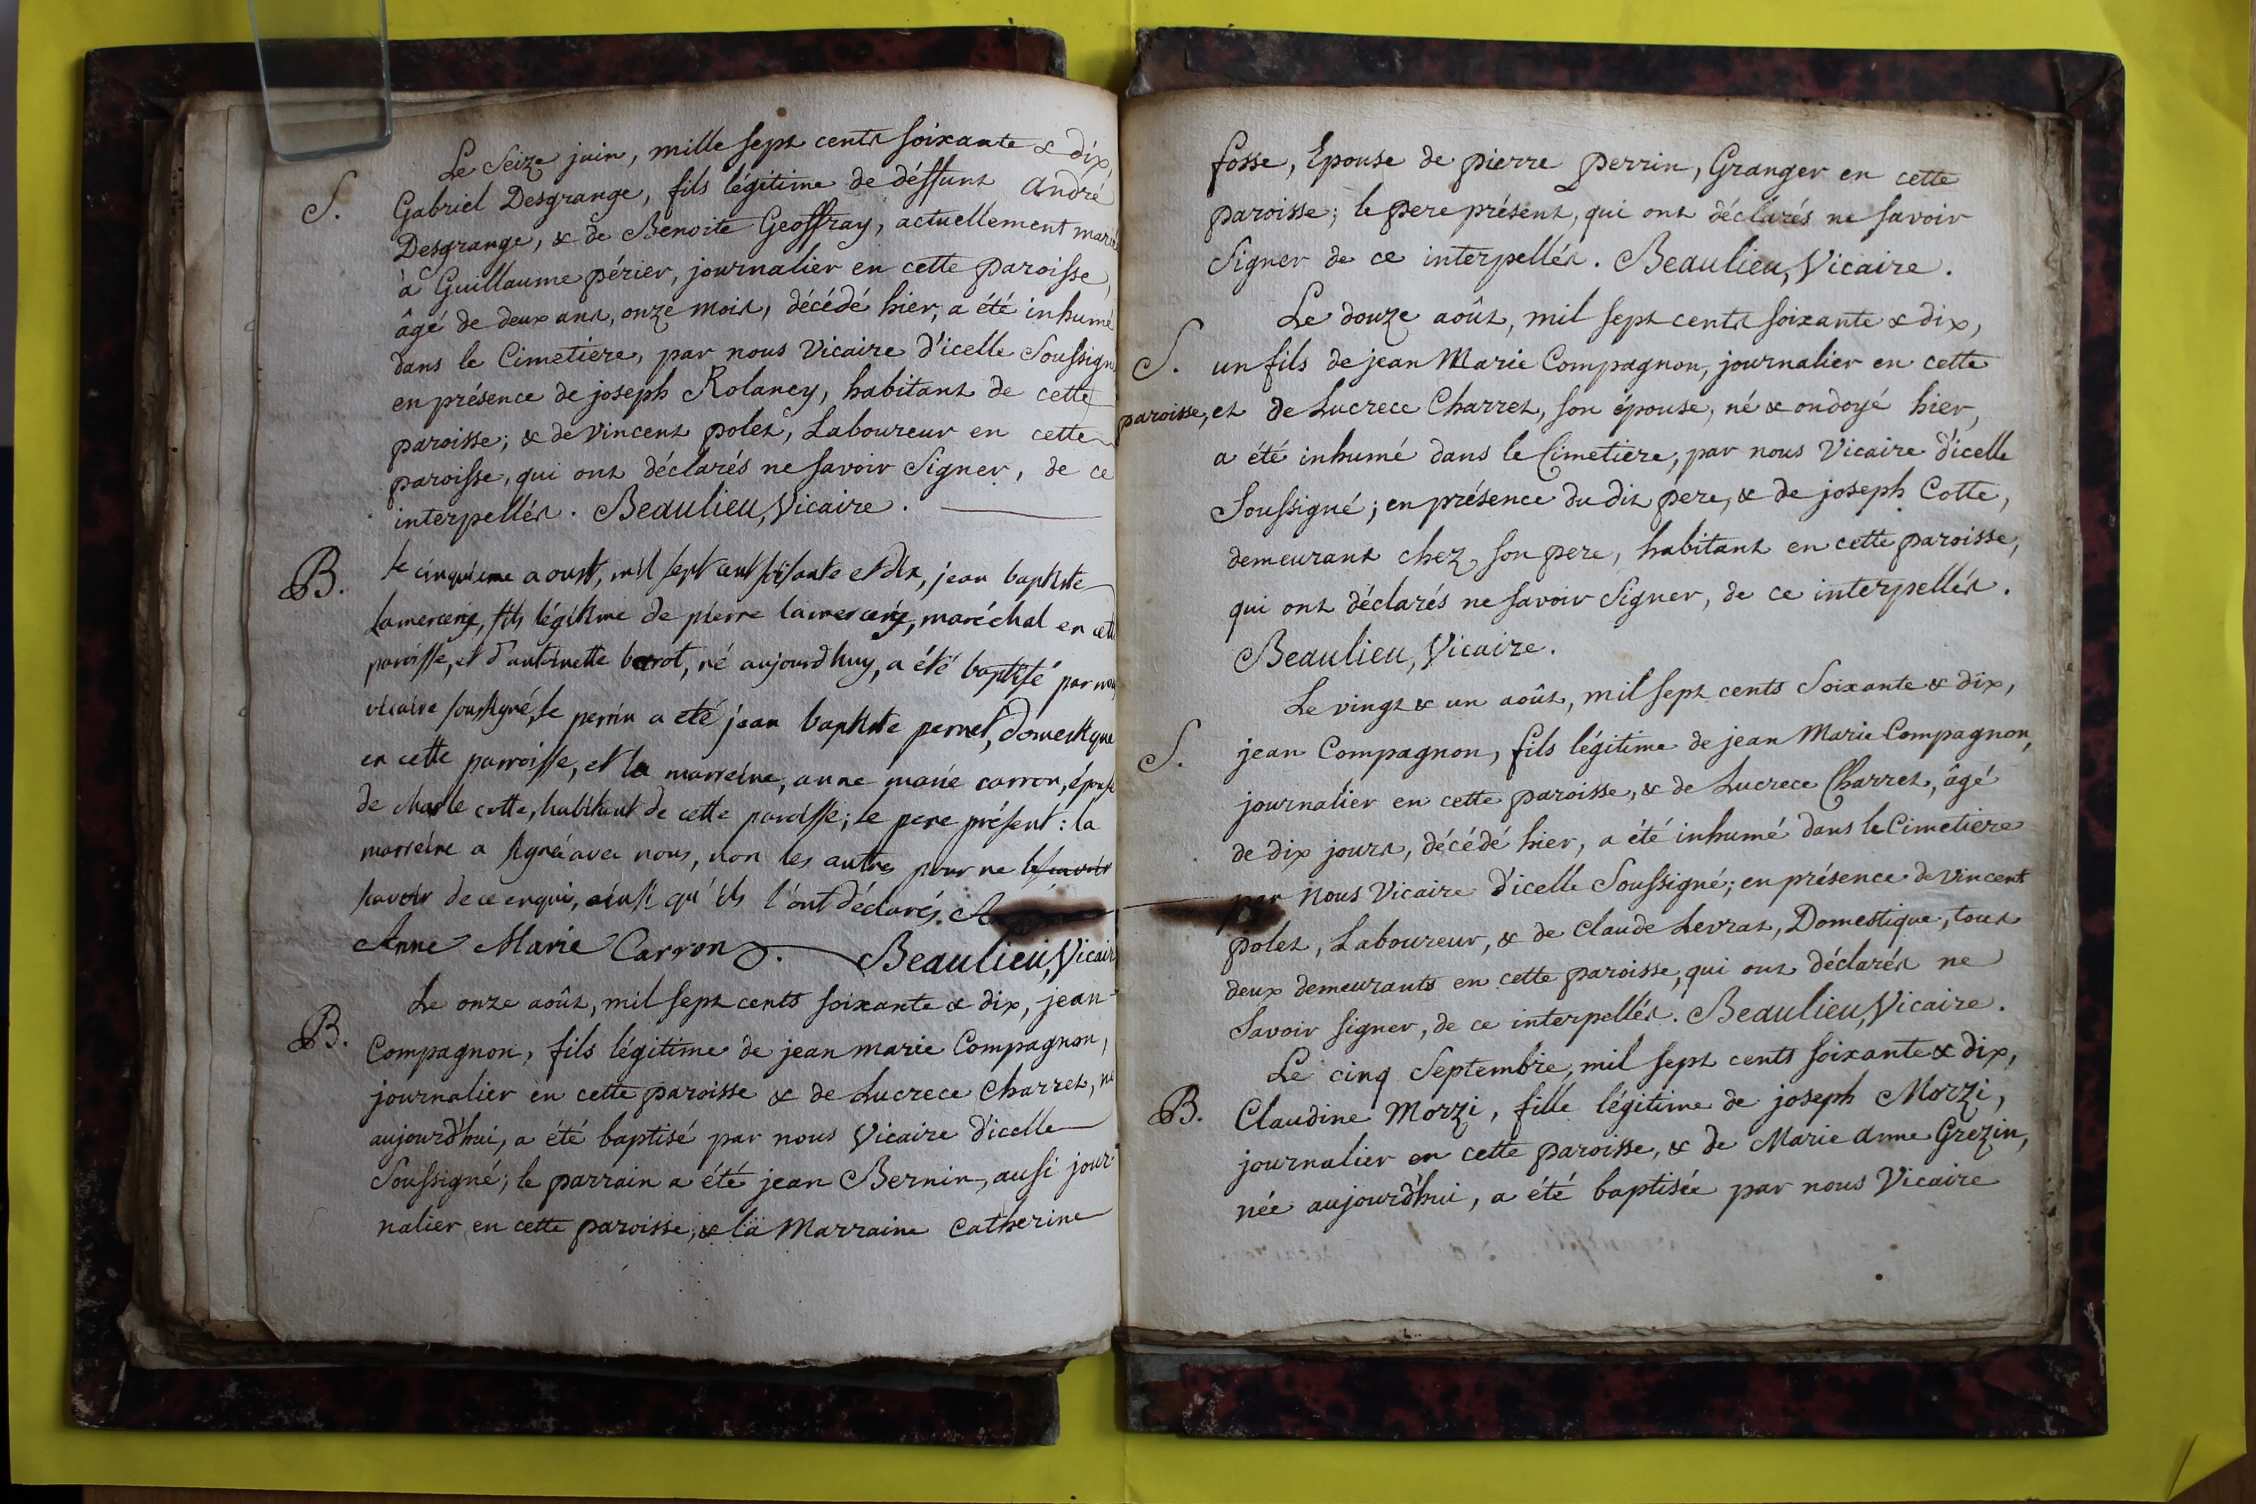 Le Seize juin, mille sept cents soixante & dix,
S. Gabriel Desgrange, fils légitime de déffunt André
Desgrange, & de Benoite Geoffray, actuellement mari
à Guillaume périer, journalier en cette paroisse,
âgé de deux ans, onze mois, décédé hier, a été inhumé
dans le Cimetiere, par nous Vicaire d'icelle Soussign
en présence de joseph Rolancy, habitant de cette
paroisse; & de vincent polet, Laboureur en cette
paroisse, qui ont déclarés ne savoir Signer, de ce
interpellés. Beaulieu, Vicaire.
B. le cinquieme aoust, mil sept cent soisante et dix, jean baptiste
lamercerie, fils légitime de pierre lamercerie, maréchal en cette
paroisse, et d'antoinette berrot, né aujourdhuy, a été baptisé par nous
vicaire soussigné, le perrin a eté jean baptiste pernet, domestique
en cette parroisse, et la marreine, anne marie carron, épouse
de charle cotte, habitant de cette paroisse; le pere présent: la
marreine a signéé avec nous, non les autres pour ne le scavoir
scavoir de ce enquis, ainsi qu'ils l'ont déclarés. A
Anne Marie Carron. Beaulieu, Vicair
Le onze août, mil sept cents soixante & dix, jean
B. Compagnon, fils légitime de jean marie Compagnon,
journalier en cette paroisse & de Lucrece Charret, né
aujourd'hui, a été baptisé par nous Vicaire d'icelle
Soussigné; le parrain a été jean Bernin, aussi jour-
nalier en cette paroisse, & la Marraine Catherine
fosse, Epouse de pierre perrin, Granger en cette
paroisse; le pere présent, qui ont déclarés ne savoir
Signer de ce interpellés. Beaulieu, Vicaire.
Le douze août, mil sept cents soixante & dix,
S. un fils de jean Marie Compagnon, journalier en cette
paroisse, et de Lucrece Charret, son épouse, né & ondoyé hier,
a été inhumé dans le Cimetiere, par nous Vicaire d'icelle
Soussigné; en présence du dit père, & de joseph Cotte,
demeurant chez son pere, habitant en cette paroisse,
qui ont déclarés ne savoir Signer, de ce interpellés.
Beaulieu, Vicaire.
Le vingt & un août, mil sept cents Soixante & dix,
S. jean Compagnon, fils légitime de jean Marie Compagnon,
journalier en cette paroisse, & de Lucrece Charret, âgé
de dix jours, décédé hier, a été inhumé dans le Cimetiere
par nous Vicaire d'icelle Soussigné; en présence de vincent
polet, Laboureur, & de Claude Levrat, Domestique, tous
deux demeurants en cette paroisse, qui ont déclarés ne
Savoir signer, de ce interpellés. Beaulieu, Vicaire.
Le cinq Septembre, mil sept cents soixante & dix,
B. Claudine Morzi, fille légitime de joseph Morzi,
journalier en cette paroisse, & de Marie Anne Grezin,
née aujourd'hui, a été baptisée par nous Vicaire